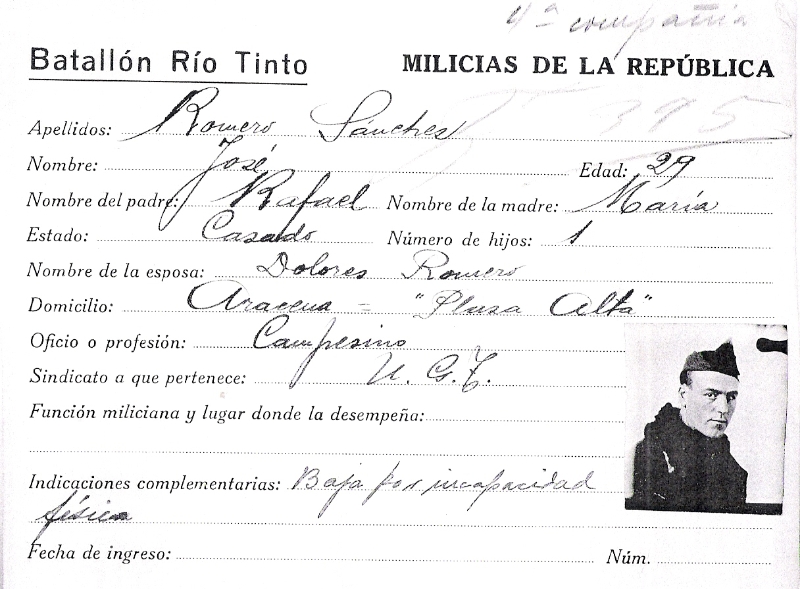 4ª compañia
Batallón Río Tinto MILICIAS DE LA REPÚBLICA
395
Apellidos: Romero Sánches
Nombre: José Edad: 29
Nombre del padre: Rafael Nombre de la madre: María
Estado: Casado Número de hijos: 1
Nombre de la esposa: Dolores Romero
Domicilio: Aracena = "Plusa Alta"
Oficio o profesión: Campesino
Sindicato a que pertenece: U. G. T.
Función miliciana y lugar donde la desempeña:
Indicaciones complementarias: Baja por incapacidad
física
Fecha de ingreso: Núm.